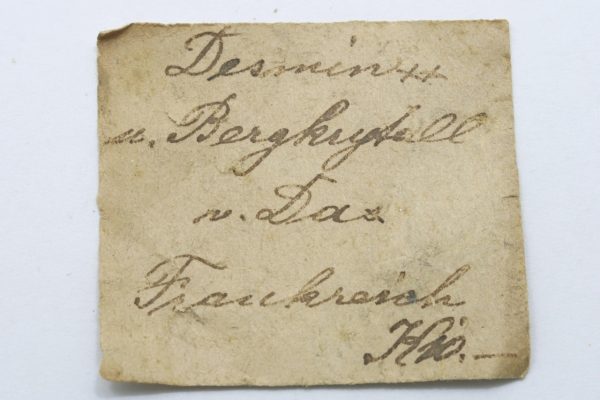 Desmin xx
u. Bergkrystall
v. Dax
Frankreich